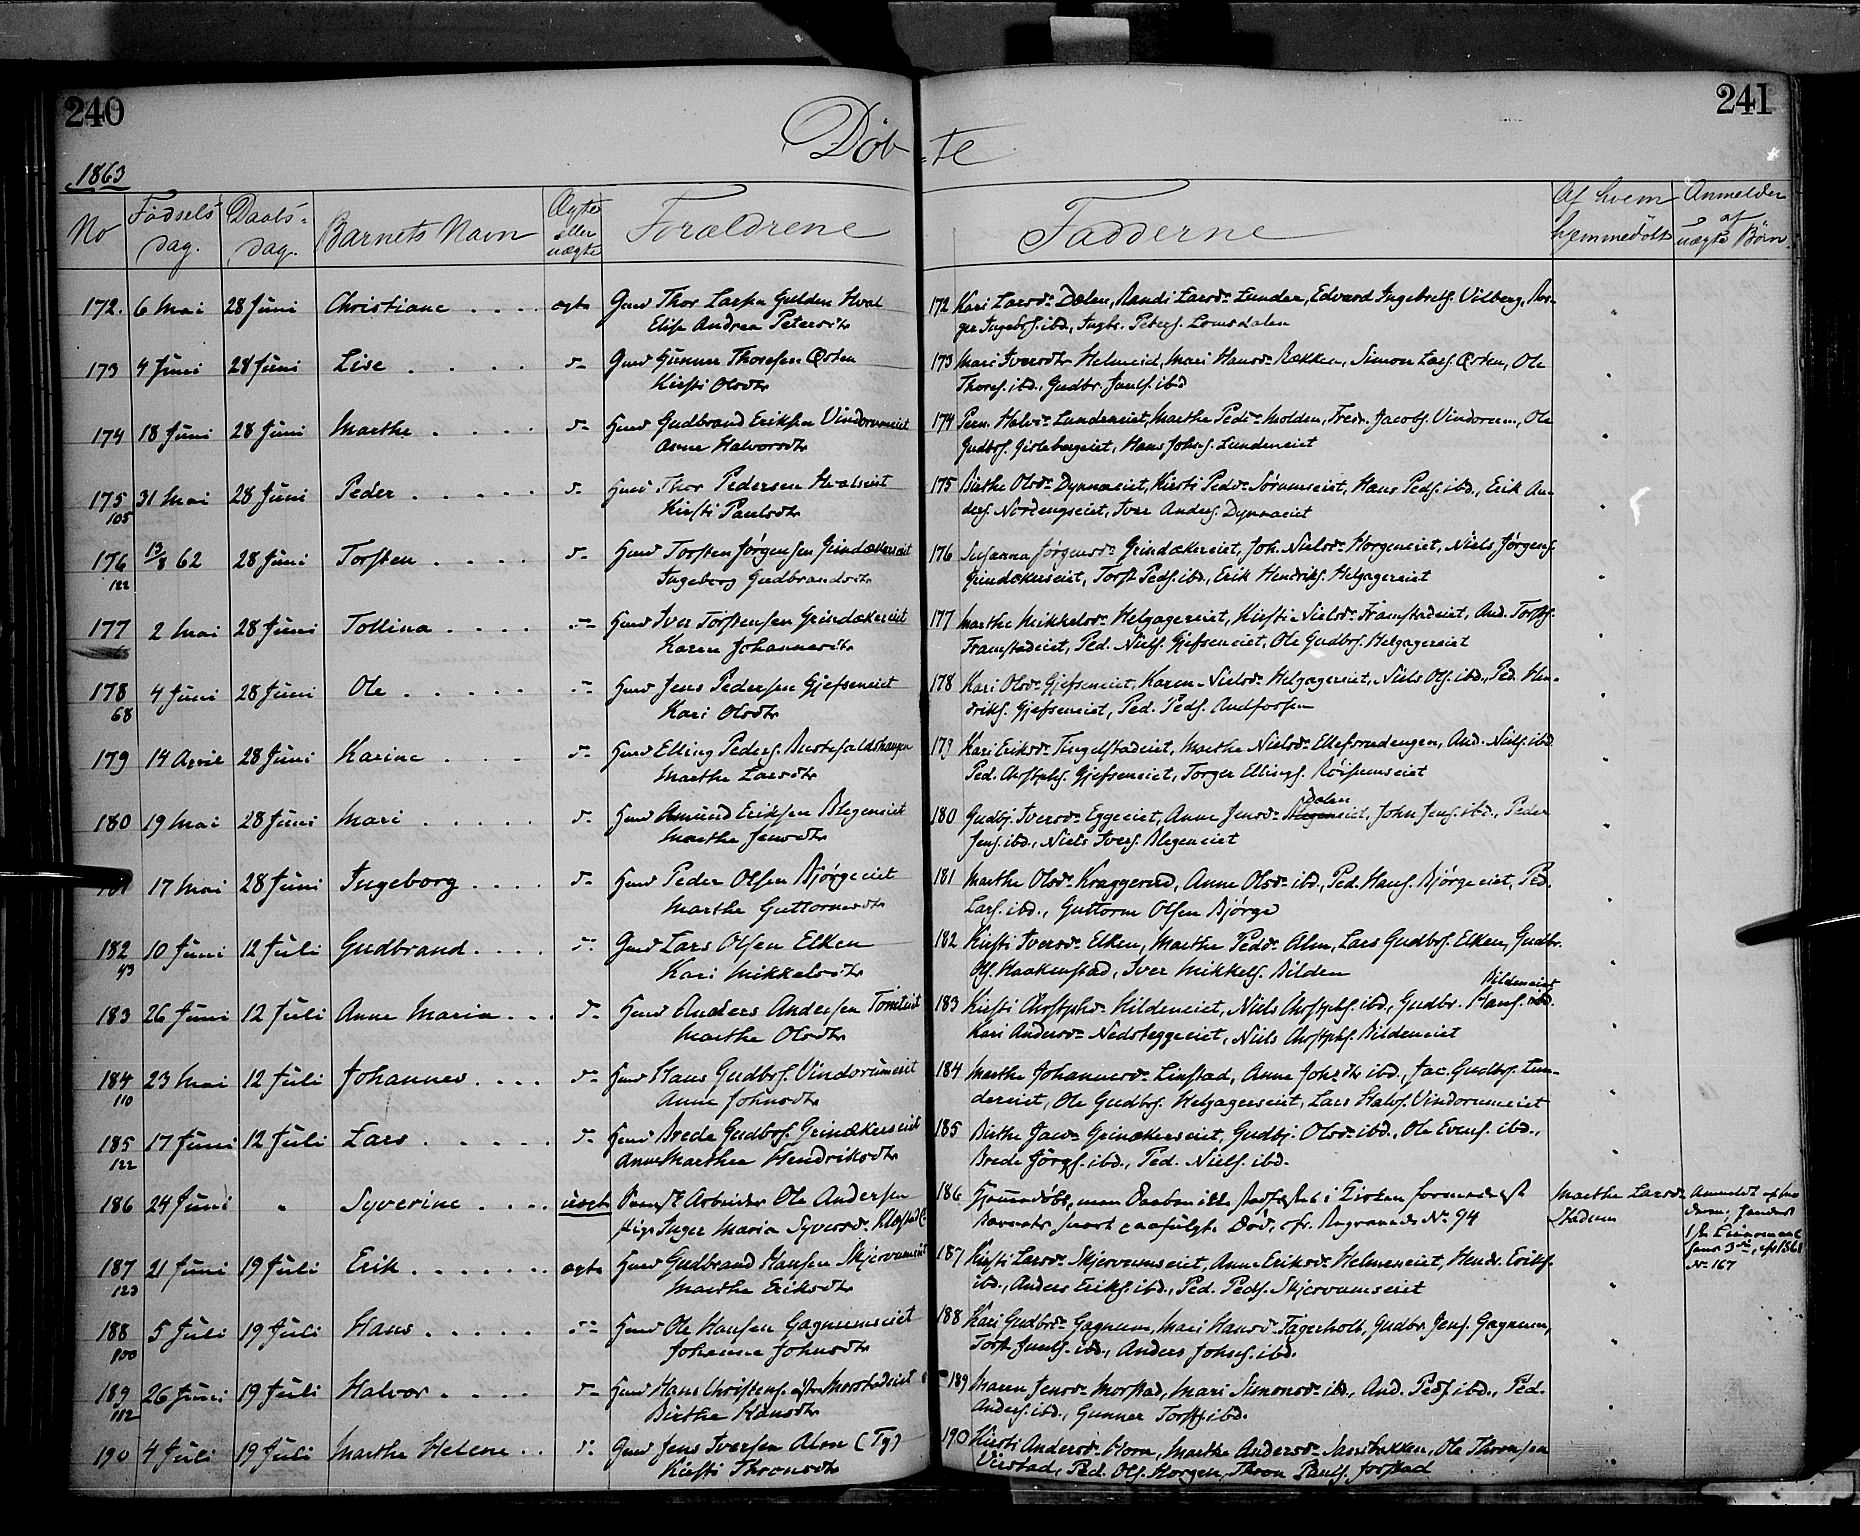 240
241
Døb-te
1863
No Fødsels dag. Daabs-dag. Barnets Navn Ægte eller uægte Forældrene Fadderne Af hvem hjemmedøbt Anmelder af uægte Børn
172. 6 Mai 28 Juni Christiane ægte Gmd Thor Larsen Gulden Hval 172 Kari Larsd. Dælen, Randi Larsd. Lunder, Edvard Ingebrets. Vilberg,
Elise Andrea Petersdtr Ingebs. ibd., Ingbr. Peters. Lomsdalen
173 4 Juni 28 Juni Lise d- Gmd Gunner Thoresen Østen 173 Mari Iversdtr Helmeid, Mari Hansd. Bækken, Simon Lars. Østen, Ole
Kirsti Olsdtr Thores. ibd., Gudbr. Pauls. ibd
174 18 Juni 28 Juni Marthe d- Hmd Gudbrand Eriksen Vindorumeiet 174 Pern. Halvd. Lundereiet, Marthe Pedd. Molden, Fredr. Jacobs. Vindorum, Ole
Anne Halvorsdtr Gudbs. Gislebergeiet, Hans Johs. Lundereiet
175 31 Mai 28 Juni Peder d- Hmd Thor Pedersen Hvalseiet 175 Birthe Olsd. Dynnaeiet, Kirsti Pedd. Sørumseiet, Hans Peds. ibd., Erik An-
105 Kirsti Paulsdtr ders. Nordengseiet, Iver Anders. Dynnaeiet
176 13/8 62 28 Juni Torsten d- Hmd Torsten Jørgensen Grindakereiet 176 Susanna Jørgensd. Grindakereiet, Joh. Nielsd. Horgeneiet, Niels Jørgens.
122 Ingeborg Gudbrandsdtr Grindakerseiet, Torst. Peds. ibd., Erik Hendriks. Helgagereiet
177 2 Mai 28 Juni Tollina d- Hmd Iver Torstensen Grindakereiet 177 Marthe Mikkelsd. Helgagereiet, Kirsti Nielsd. Framstadeiet, And. Torsts.
Karen Johannesdtr Framstadeiet, Ped. Niels. Gjefseneiet, Ole Gudbs. Helgagereiet
178 4 Juni 28 Juni Ole d- Hmd Jens Pedersen Gjefseneiet 178 Kari Olsd. Gjefseneiet, Karen Nielsd. Helgagereiet, Niels Ols. ibd., Ped. Hen-
68 Kari Olsdtr driks. Gjefseneiet, Ped. Peds.
179 14 April 28 Juni Karine d- Hmd Elling Peders. 179 Kari Eriksd. Tingelstadeiet, Marthe Nielsd. Ellefsrudengen, And. Niels. ibd
Marthe Larsdtr Ped. Chrstphs. Gjefseneiet, Torger Ellings.
180 19 Mai 28 Juni Mari d- Hmd Amund Eriksen Blegeneiet 180 Gudbj. Iversd. Eggeeiet, Anne Jensd. Dælen Blegeneiet, John Jens. ibd., Peder
Marthe Jensdtr Jens. ibd., Niels Ivers. Blegeneiet
181 17 Mai 28 Juni Ingeborg d- Hmd Peder Olsen Bjørgeeiet 181 Marthe Olsd. Kraggerud, Anne Olsd. ibd, Ped. Hans. Bjørgeeiet, Ped.
Marthe Guttormsdtr Lars. ibd., Guttorm Olsen Bjørge
182 10 Juni 12 Juli Gudbrand d- Gmd Lars Olsen Elken 182 Kirsti Iversd. Elken, Marthe Pedd. Alm, Lars Gudbs. Elken, Gudbr.
43 Kari Mikkelsdtr Ols. Haakenstad, Iver Mikkels. Bilden
183 26 Juni 12 Juli Anne Maria d- Hmd Anders Andersen 183 Kirsti Chrstphd. Hildeneiet, Niels Chrstphs. ibd., Gudbr. Hans. ibd. Bildeneiet
Marthe Olsdtr Kari Andersd. Nedreggeeiet, Niels Chrstphs. Bildeneiet
184 23 Mai 12 Juli Johannes d- Hmd Hans Gudbs. Vindorumeiet 184 Marthe Johannesd. Linstad, Anne Johsdtr ibd., Jac. Gudbs. Lun-
110 Anne Johnsdtr dereiet, Ole Gudbs. Helgagerseiet, Lars Halvs. Vindorumeiet
185 17 Juni 12 Juli Lars d- Hmd Brede Gudbs. Grinakerseiet 185 Birthe Jacd. Grinakerseiet, Gudbj. Olsd. ibd., Ole Evens. ibd.,
122 Anne Marthea Hendriksdtr Brede Jørgs. ibd., Ped. Niels. ibd.
186 24 Juni " Syverine uægte Arbeider Ole Andersen 186 Hjemmedøbt, men Daaben ikke stadfæstet i Kirken formedelst Marthe Larsd.
Pige Inger Maria Syversd. Klæstad Barnets snart paafulgte Død, cfr. Begravede No. 94
No. 167
187 21 Juni 19 Juli Erik ægte Hmd Gudbrand Hansen Skjervumeiet 187 Kirsti Larsd. Skjervumseiet, Anne Eriksd. Helmeneiet, Hendr. Eriks.
123 Marthe Eriksdtr ibd., Anders Eriks. ibd., Ped. Peds. Skjervumseiet
188 5 Juli 19 Juli Hans d- Hmd Ole Hansen Gagnumseiet 188 Kari Gudbrd. Gagnum, Mari Hansd. Fagerholt, Gudbr. Jens. Gagnum,
100 Johanne Johnsdtr Torst. Pauls. ibd., Anders Johs. ibd.
189 26 Juni 19 Juli Halvor d- Hmd Hans Christens. Morstadeiet 189 Maren Jensd. Morstad, Mari Simonsd. ibd., And. Peds. ibd., Ped.
112 Birthe Hansdtr Anders. ibd., Gunner Torsts. ibd.
190 4 Juli 19 Juli Marthe Helene d- Gmd Jens Iversen Alm (Ty) 190 Kirsti Andersd. Horn, Marthe Andersd. Sandbakken, Ole Thronsen
Kirsti Thronsdtr Virstad, Ped. Ols. Horgen, Thron Pauls. Jorstad